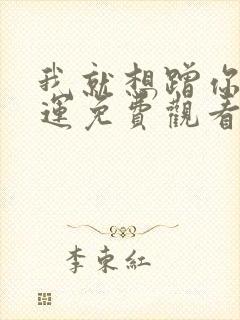 我就想蹭你
運免費觀看
李東紅